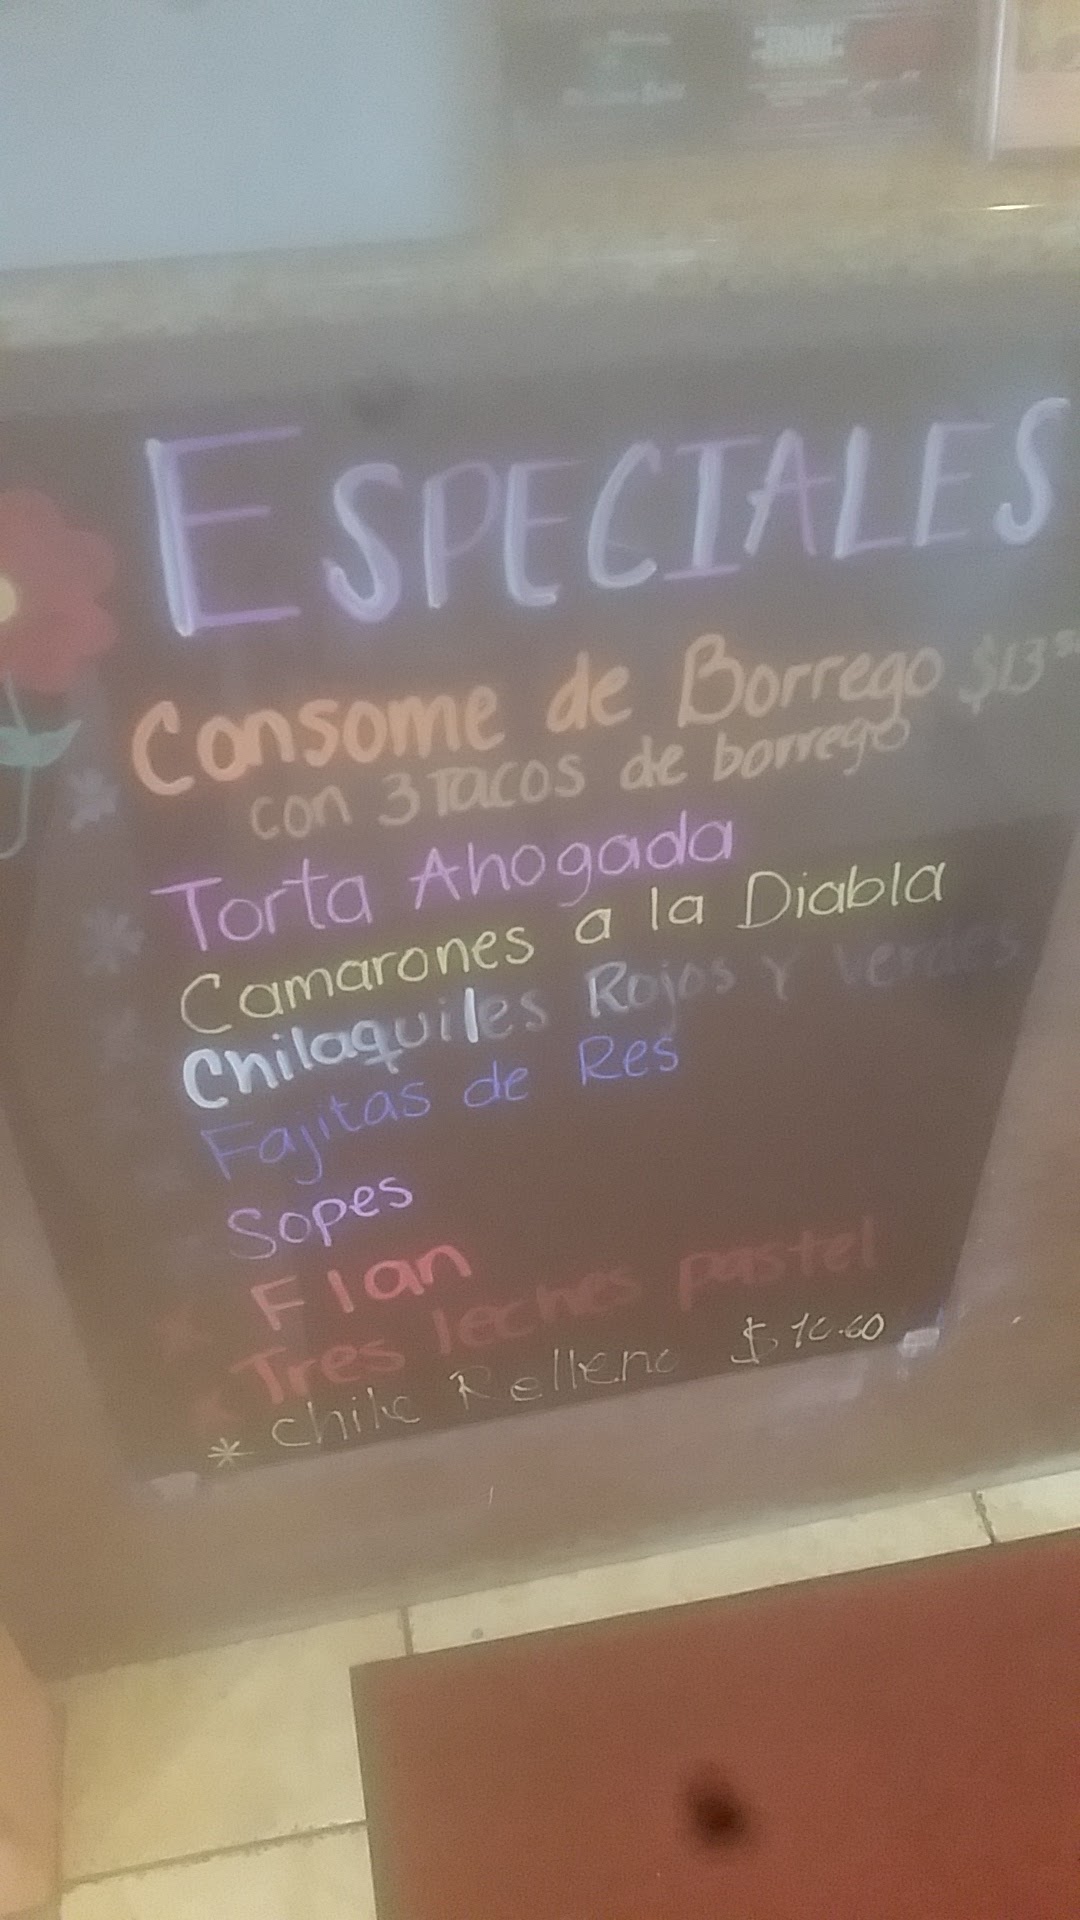 ESPECIALES
Consome de Borrego $13
con 3 Tacos de borrego
Torta Ahogada
Camarones a la Diabla
Chilaquiles Rojos y Verdes
Fajitas de Res
Sopes
Flan
Tres leches pastel
* Chile Relleno